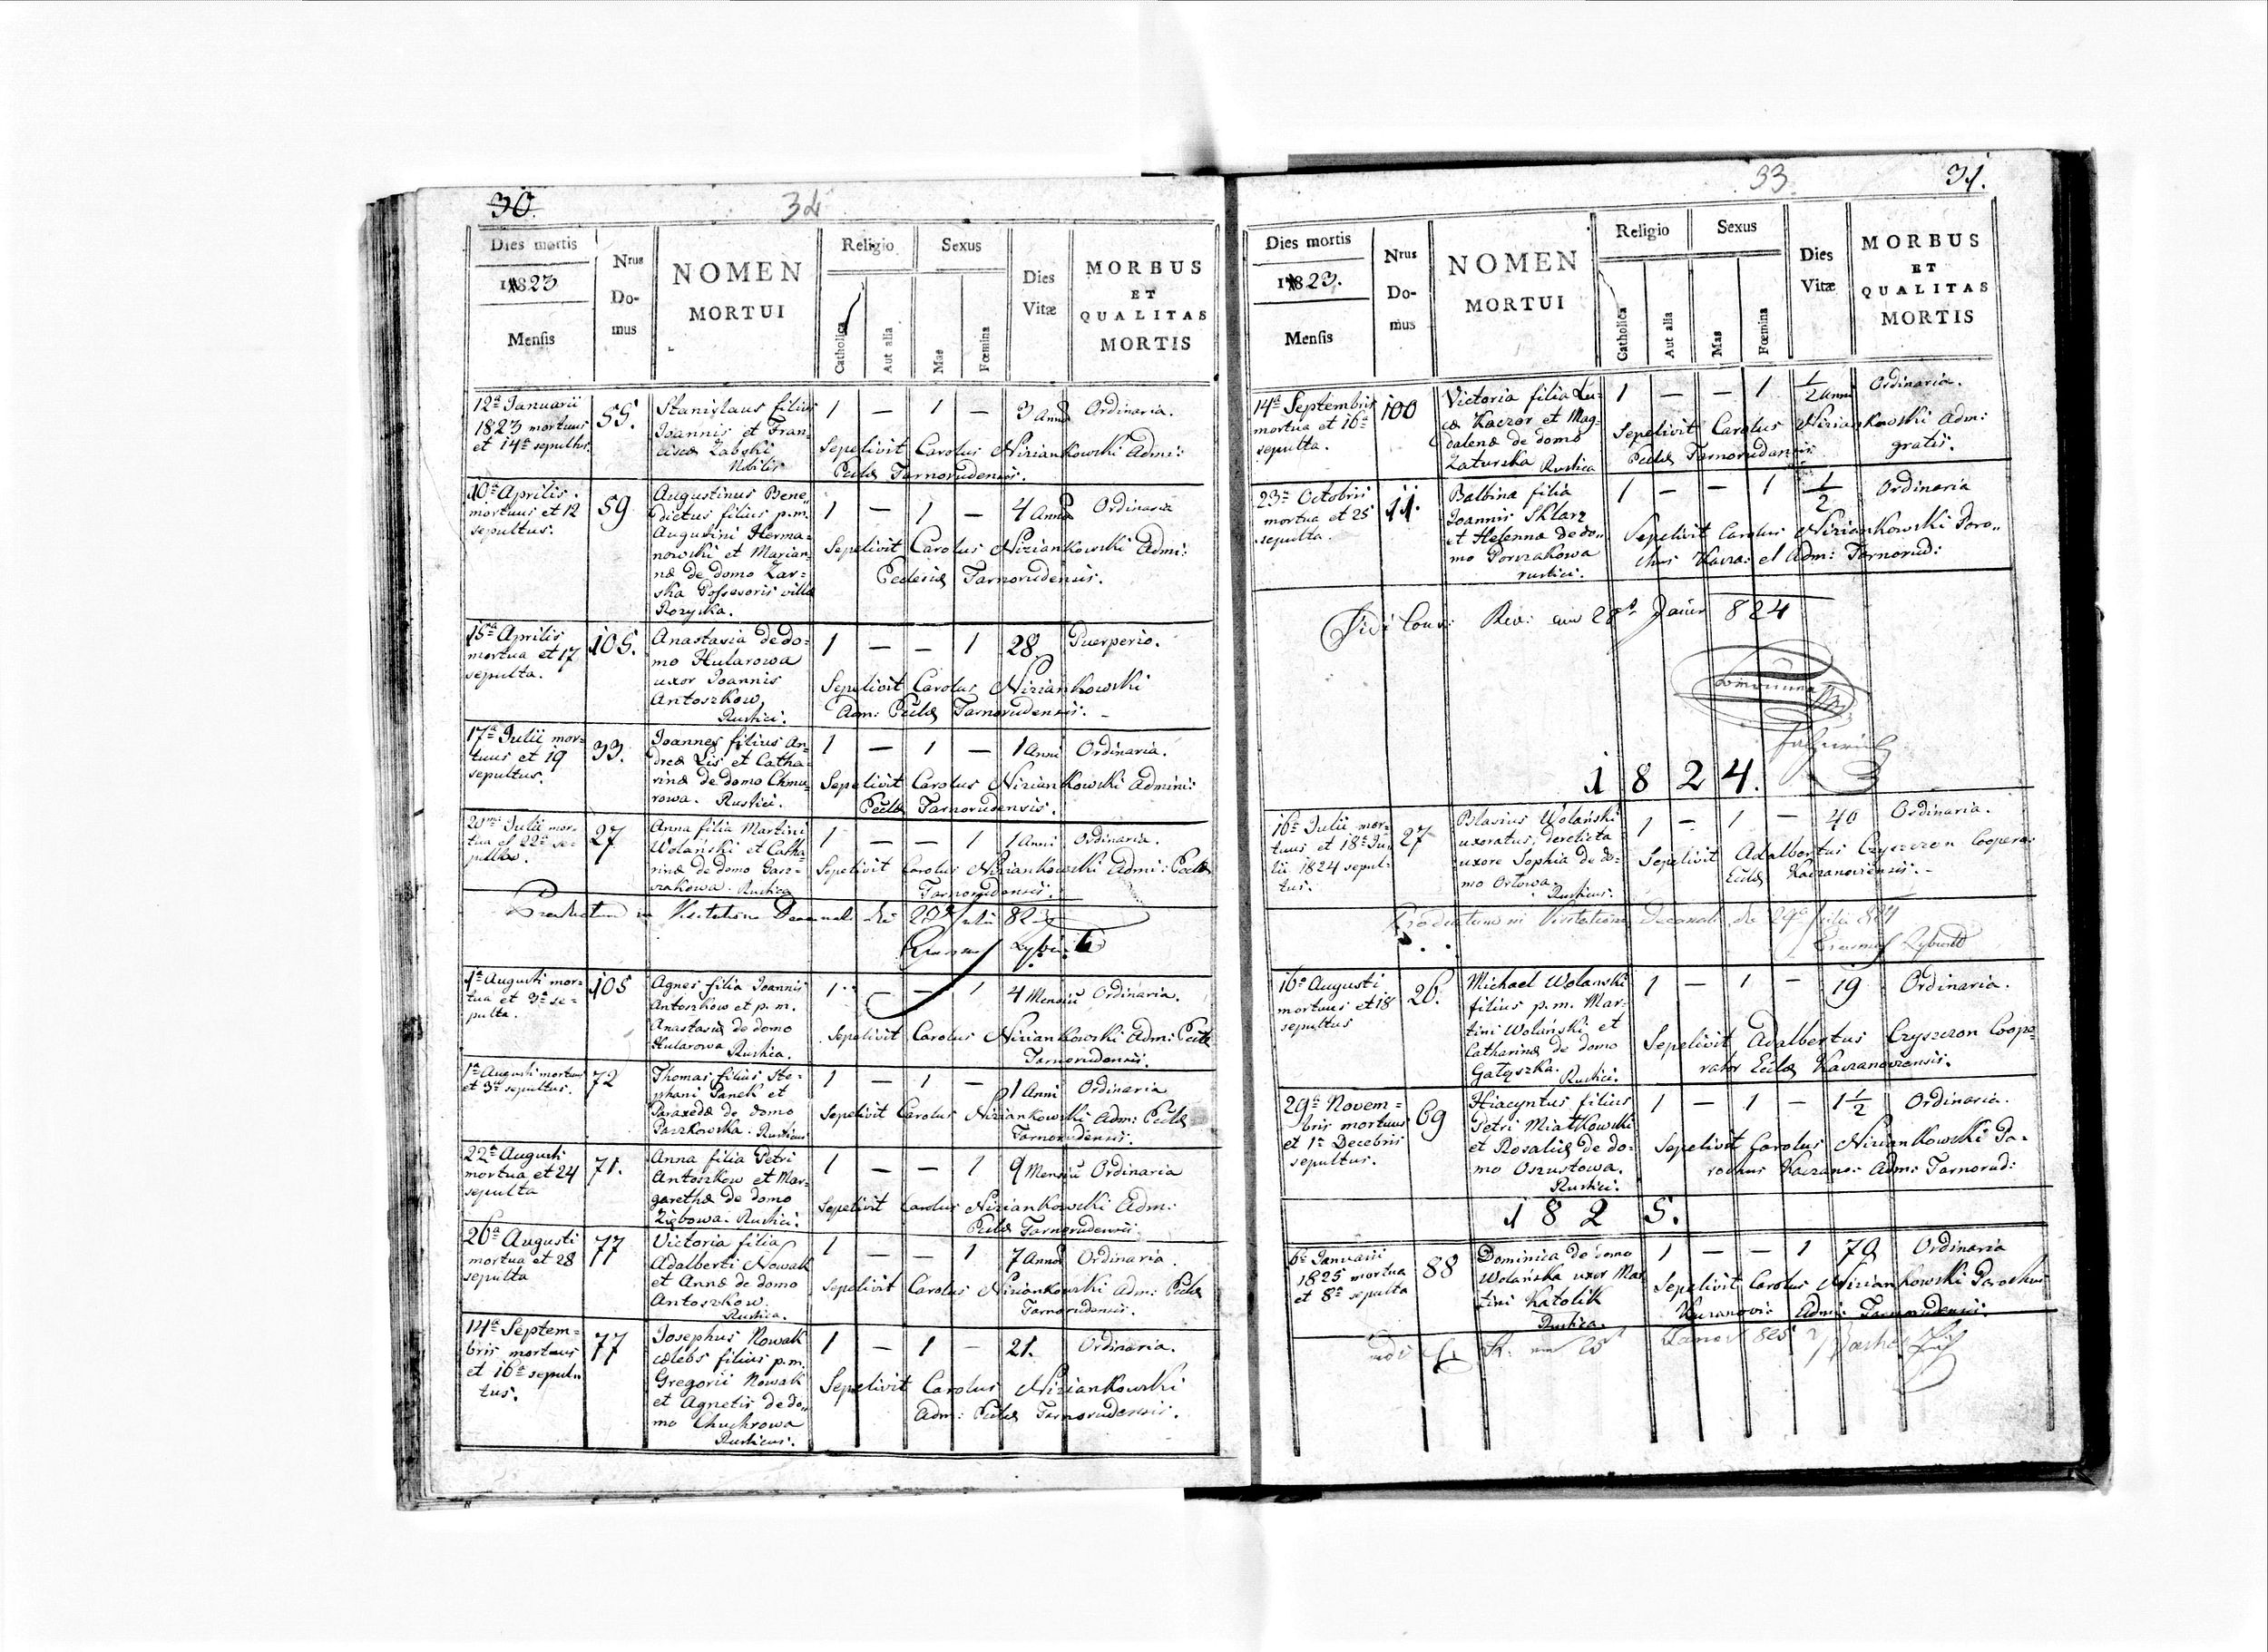 30.
32
Dies mortis
1823
Mensis
Nrus
Do-
mus
NOMEN
MORTUI
Religio
Catholica
Aut alia
Sexus
Mas
Fœmina
Dies
Vitæ
MORBUS
ET
QUALITAS
MORTIS
12a Januarii
1823 mortuus
et 14a sepultus.
55.
Stanislaus filius
Joannis et Fran-
ciscæ Zabski
Nobilis
1 — 1 — 3 Anno Ordinaria.
Sepelivit Carolus Niziankowski Admi:
Eccle Tarnorudensis.
10a Aprilis.
mortuus et 12
sepultus.
59
Augustinus Bene„
dictus filius p.m.
Augustini Herma=
nowski et Marian=
næ de domo Zar=
ska Possesoris villæ
Rozyska.
1 — 1 — 4 Anno Ordinaria
Sepelivit Carolus Niziankowski Admi:
Eclesiæ Tarnorudensis.
15a Aprilis
mortua et 17
sepulta.
105.
Anastasia de do=
mo Hularowa
uxor Joannis
Antoszkow
Rustici.
1 — — 1 28. Puerperio.
Sepelivit Carolus Niziankowski
Adm: Eccle Tarnorudensis. -
17a Julii mor=
tuus et 19
sepultus.
33.
Joannes filius An=
dreæ Lis et Catha=
rinæ de domo Chmu=
rowa. Rustici.
1 — 1 — 1 Anni Ordinaria.
Sepelivit Carolus Niziankowski Admini:
Eccle Tarnorudensis.
20ma Julii mor=
tua et 22a se=
pulta.
27
Anna filia Martini
Wolański et Catha=
rinæ de domo Garz=
rzakowa. Rustica
1 — — 1 1 Anni Ordinaria.
Sepelivit Carolus Niziankowski Admi: Eccle
Tarnorudensis.
Productum in Visitatione Decanali die 29a Julii 823
1a Augusti mor=
tua et 3a se=
pulta.
105
Agnes filia Joannis
Antoszkow et p.m.
Anastasiæ de domo
Hularowa Rustica.
1 — — 1 4 Mensiu Ordinaria.
Sepelivit Carolus Niziankowski Adm: Eccle
Tarnorudensis.
1a Augusti mortuus
et 3a sepultus.
72
Thomas filius Ste=
phani Panek et
Paraxedæ de domo
Paszkowska. Rusticus
1 — 1 — 1 Anni Ordinaria
Sepelivit Carolus Niziankowski Adm: Eccle
Tarnorudensis.
22a Augusti
mortua et 24
sepulta
71.
Anna filia Petri
Antoszkow et Mar=
garethæ de domo
Ziębowa. Rustici.
1 — — 1 9 Mensiu Ordinaria
Sepelivit Carolus Niziankowski Adm:
Eccle Tarnorudensis
26a Augusti
mortua et 28
sepulta
77
Victoria filia
Adalberti Nowak
et Annæ de domo
Antoszkow.
Rustica.
1 — — 1 7 Anno Ordinaria.
Sepelivit Carolus Niziankowski Adm: Eccle
Tarnorudensis.
14a Septem=
bris mortuus
et 16a sepul„
tus.
77
Josephus Nowak
cælebs filius p.m.
Gregorii Nowak
et Agnetis de do„
mo Chuchrowa
Rusticus.
1 — 1 — 21. Ordinaria.
Sepelivit Carolus Niziankowski
Adm: Eccle Tarnorudensis.
33
31.
Dies mortis
1823.
Mensis
Nrus
Do-
mus
NOMEN
MORTUI
Religio
Catholica
Aut alia
Sexus
Mas
Fœmina
Dies
Vitæ
MORBUS
ET
QUALITAS
MORTIS
14a Septembris
mortua et 16a
sepulta.
100
Victoria filia Lu=
cæ Kaczor et Mag=
dalenæ de domo
Zaturska Rustica
1 — — 1 1/2 Anni Ordinaria.
Sepelivit Carolus Niziankowski Adm:
Eccle Tarnorudensis gratis.
23a Octobris
mortua et 25
sepulta.
11.
Balbina filia
Joannis Sklarz
et Helenna de do„
mo Porszakowa
rustici.
1 — — 1 1/2 Ordinaria
Sepelivit Carolus Niziankowski Paro„
chus Kacza: et Adm: Tarnorud:
Vidi 28t 824
1824.
16a Julii mor=
tuus et 18a Ju=
lii 1824 sepul=
tus.
27
Blasius Wolański
uxoratus, derelicta
uxore Sophia de do=
mo Orłowa.
Rusticus.
1 — 1 — 40 Ordinaria.
Sepelivit Adalbertus Czyszczon Coopera:
Eccle Kaczanoviensis. -
Productum in Visitatione Decanali die 29a Julii 824
16a Augusti
mortuus et 18
sepultus
26.
Michael Wolanski
filius p.m. Mar=
tini Wolański et
Catharinæ de domo
Gałyszka. Rustici.
1 — 1 — 19 Ordinaria.
Sepelivit Adalbertus Czyszczon Coope=
rator Eccle Kaczanoviensis.
29a Novem=
bris mortuus
et 1a Decebris
sepultus.
69
Hiacyntus filius
Petri Miatkowski
et Rosaliæ de do=
mo Oszustowa.
Rustici.
1 — 1 — 1 1/2 Ordinaria.
Sepelivit Carolus Niziankowski Pa=
rochus Kaczano: Adm: Tarnorud:
1825.
6a Januarii
1825 mortua
et 8a sepulta
88
Dominica de domo
Wolańska uxor Mar
tini Katolik
Rustica.
1 — — 1 70 Ordinaria
Sepelivit Carolus Niziankowski Parochus
Kaczanovi: Admi: Tarnorudensis.